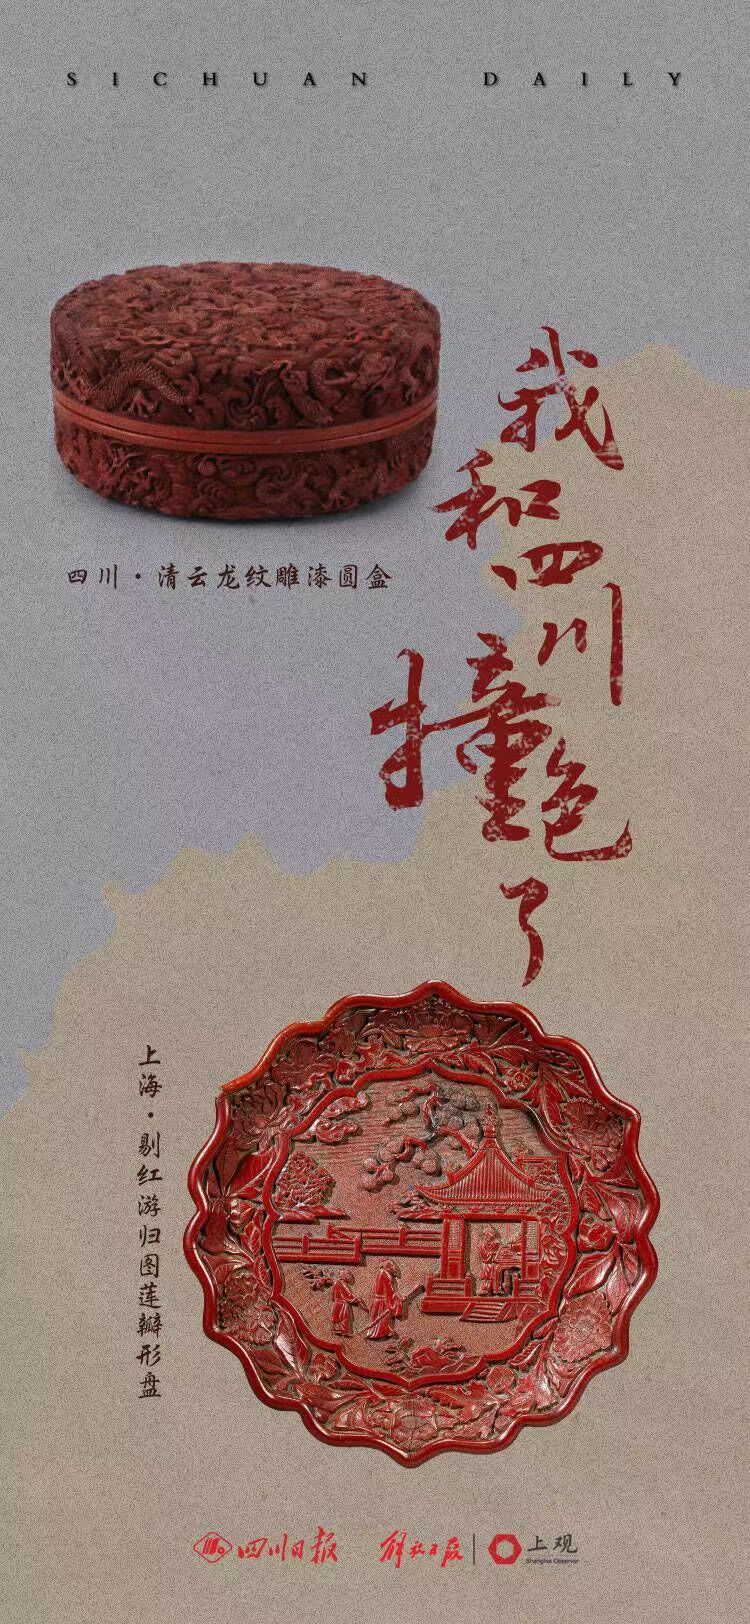 SICHUAN DAILY
我和四川撞色了
四川·清云龙纹雕漆圆盒
上海·剔红游归图莲瓣形盘
四川日报 解放日报 上观
Shanghai Observer